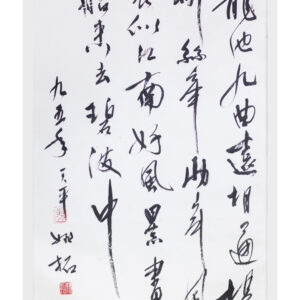 龍池九曲遠相通楊
柳絲牽兩岸風
長似江南好風景畫
船來去碧波中
九五年 天平 姚拓